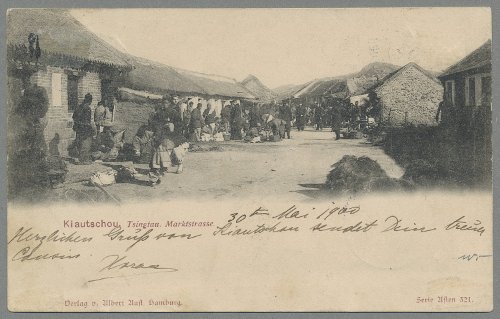 Kiautschou. Tsingtau. Marktstrasse
30ten Mai 1900
Herzlichen Gruß von Kiautschou sendet Dein treuer
Cousin
Verlag v. Albert Aust Hamburg.
Serie Asien 521.